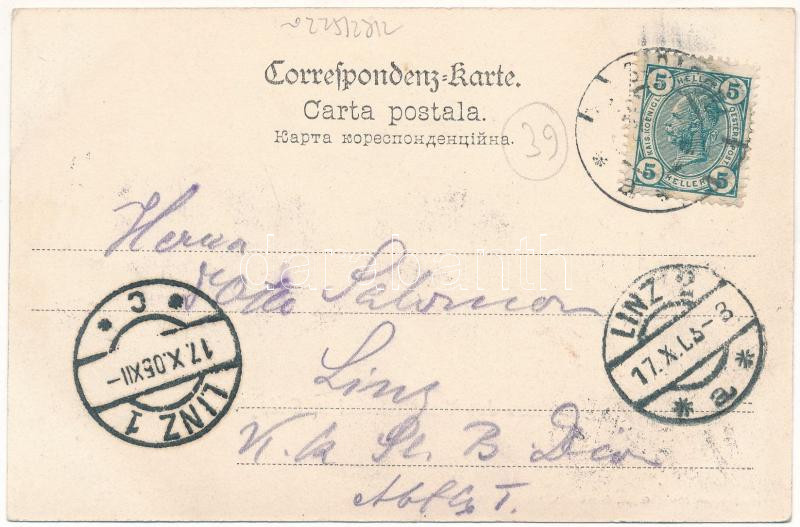 Correspondenz-Karte.
Carta postala.
Карта кореспонденційна.
39
5 HELLER 5
KAIS. KOENIGL. OESTERR. POST
5 HELLER 5
Herrn
Otto Salomon
Linz
K. k. St. B. Dir
Abtlg I.
LINZ 1
17.X.05 XII-
C
LINZ
17.X.
-8
a
darabanth